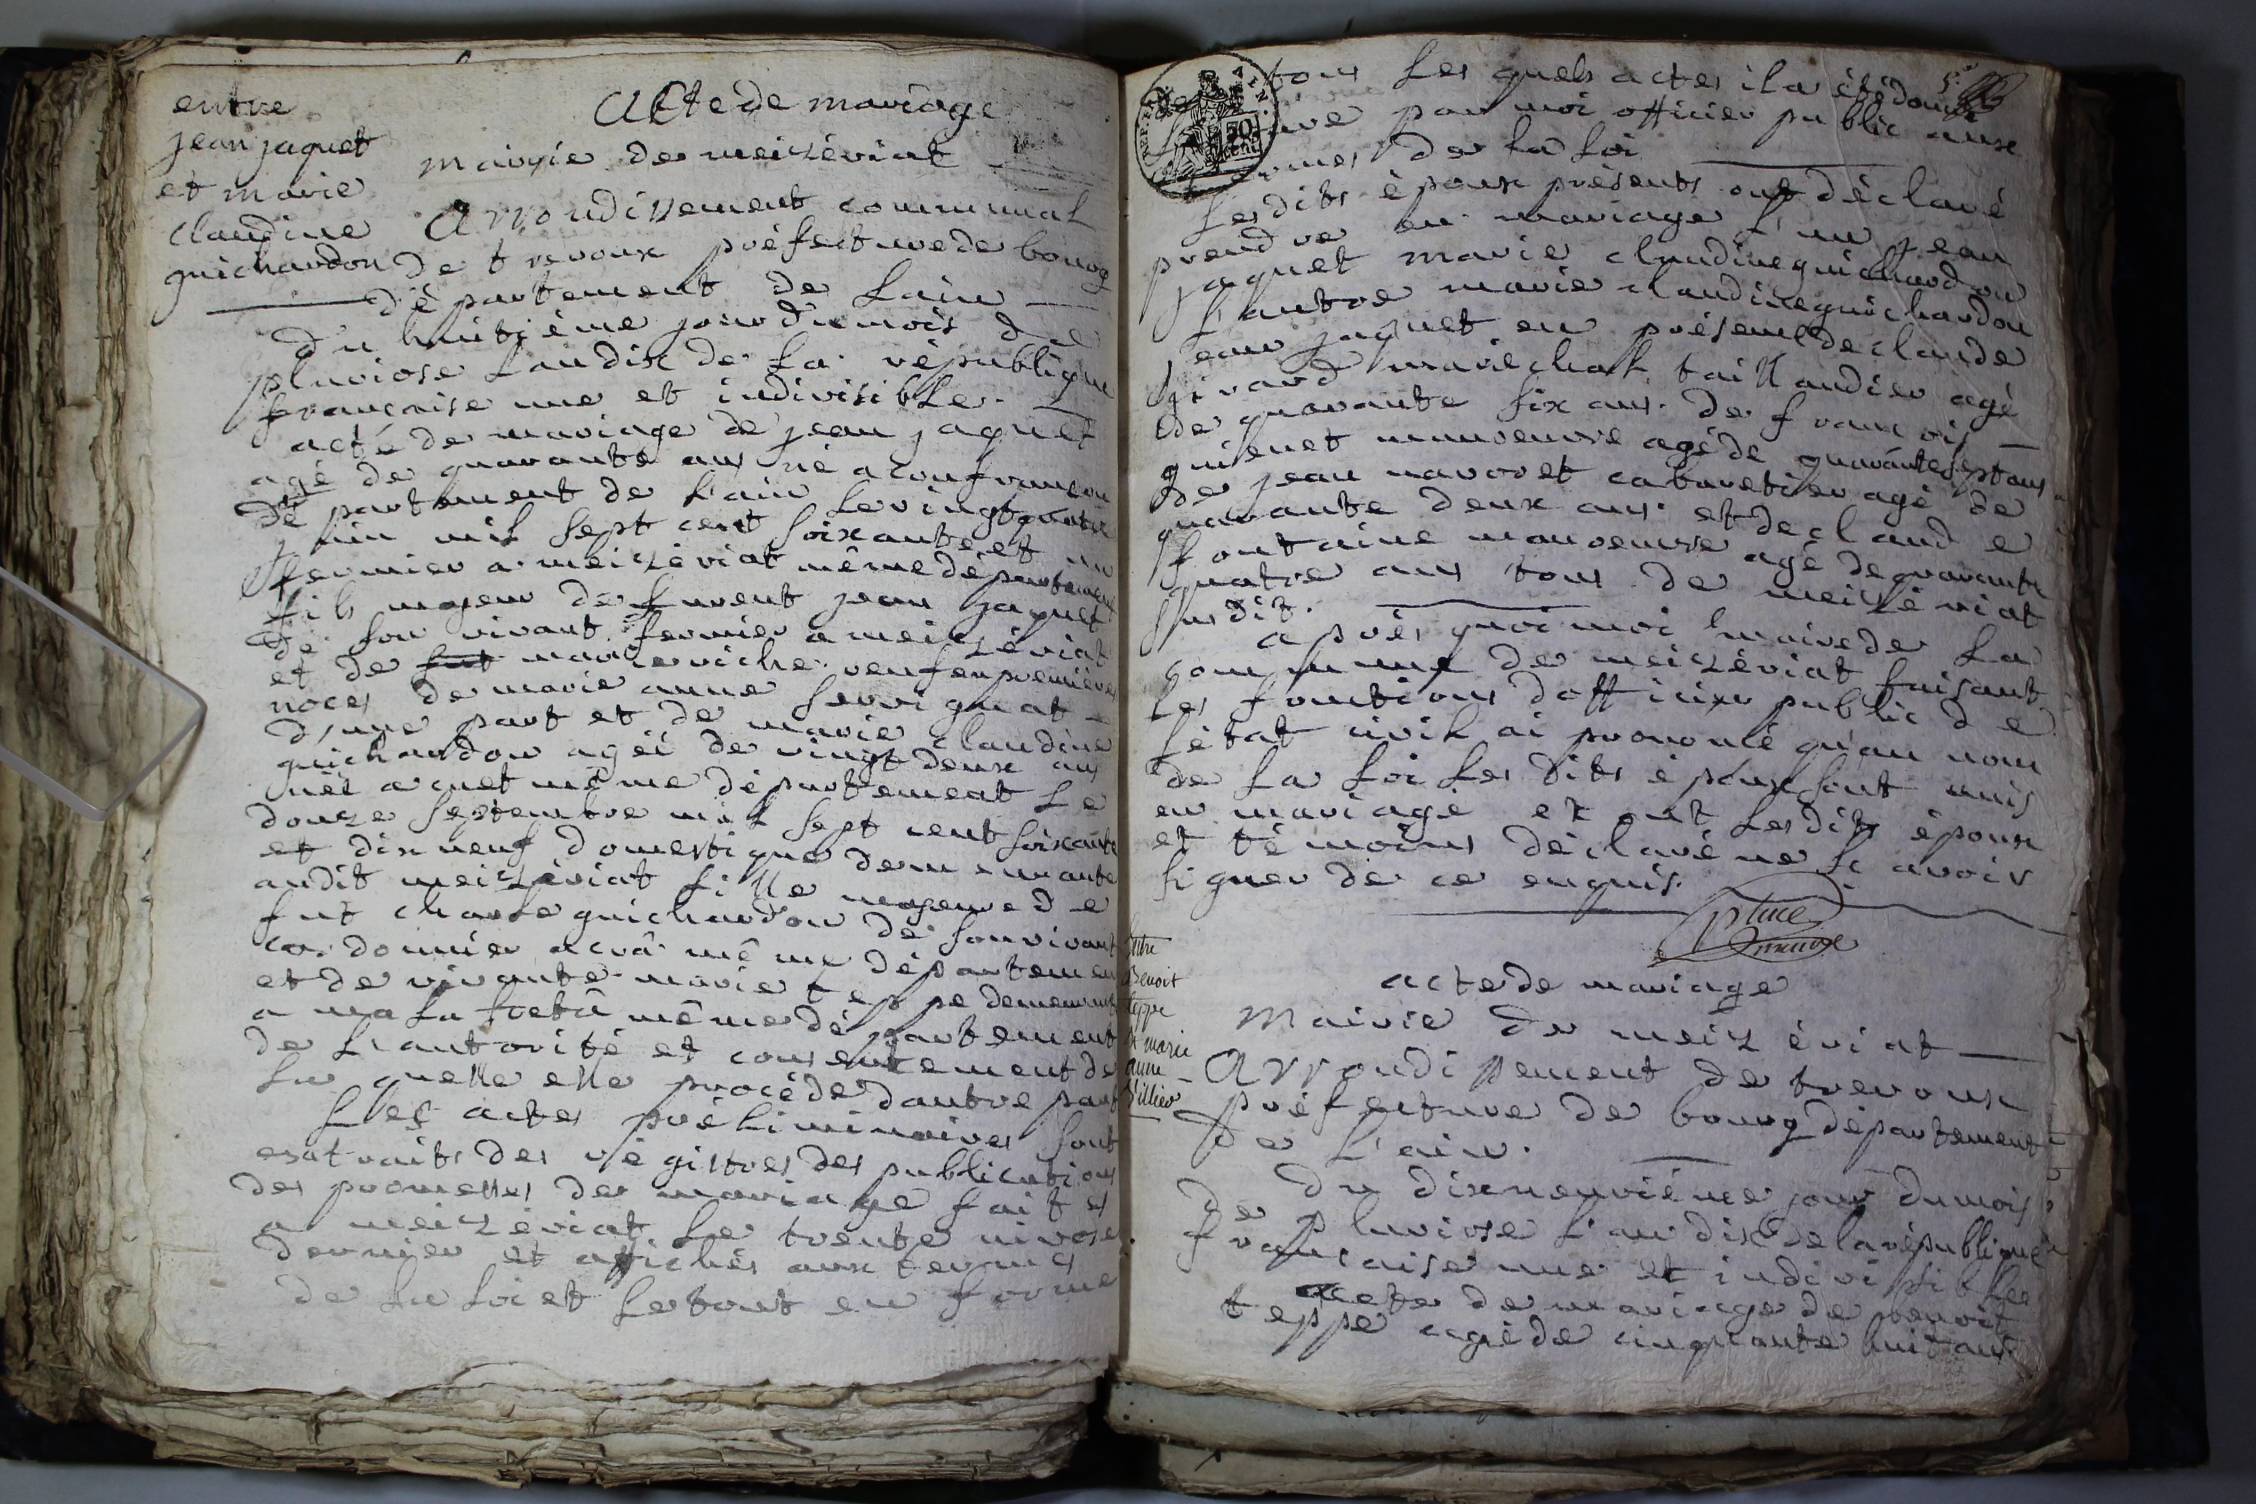 entre
jean jaquet
et marie
claudine
guichardon
Acte de mariage
mairie de meizériat
Arrondissement communal
de trevoux préfecture de bourg
département de Lain
Du huitième jour du mois de
pluviose Lan dix de La république
française une et indivisible.
acte de mariage de jean jaquet
agé de quarante ans né a confrançon
département de Lain Le vingt quatre
juin mil sept cent soixante et un
fermier a meizériat même département
fils majeur de furent jean jaquet
de son vivant fermier a meizériat
et de marie veuf en premières
noces de marie anne servignat
d'une part et de marie claudine
guichardon agéé de vingt deux ans
néé a cuet même département Le
douze septembre mil sept cent soixante
et dix neuf domestique demeurante
audit meizériat fille majeure de
fut charle guichardon de son vivant
cordonnier a crâ même département
et de vivante marie teppe demeurant
a malafretâ même département
de L'autorité et consentement de
La quelle elle procède dautre part
Les actes préliminaires sont
extraits des régistres des publications
des promesses de mariage faites
a meizériat Le trente nivose
dernier et affichés aux termes
de La Loi et Le tout en forme
5.e
REP. FRA
50
cent
de tous Les quels actes il a été donné
par moi officier public aux
termes de La Loi
Lesdits époux présents ont déclaré
prendre en mariage L'un jean
jaquet marie claudine guichardon
L'autre marie claudine guichardon
jean jaquet en présence de claude
givard maréchal taillandier agé
de quarante six ans. de francois
guienet manoeuvre agé de quarante sept ans
de jean navoret cabaretier agé de
quarante deux ans. et de claude
fontaine manoeuvre agé de quarante
quatre ans tous de meizériat
susdit.
après quoi moi maire de La
commune de meizériat faisant
Les fonctions dofficier public de
Létat civil ai prononcé qu'au nom
de La Loi Les dits époux sont unis
en mariage et ont Lesdits époux
et témoins déclaré ne scavoir
signer de ce enquis.
maire
entre
Benoit
teppe
et marie
anne
Villier
acte de mariage
Mairie de meizériat
Arrondissement de trevoux
préfecture de bourg département
de L'ain.
Du dixneuvième jour du mois
de pluviose L'an dix de la république
française une et indivisible
acte de mariage de benoit
teppe agé de cinquante huit ans